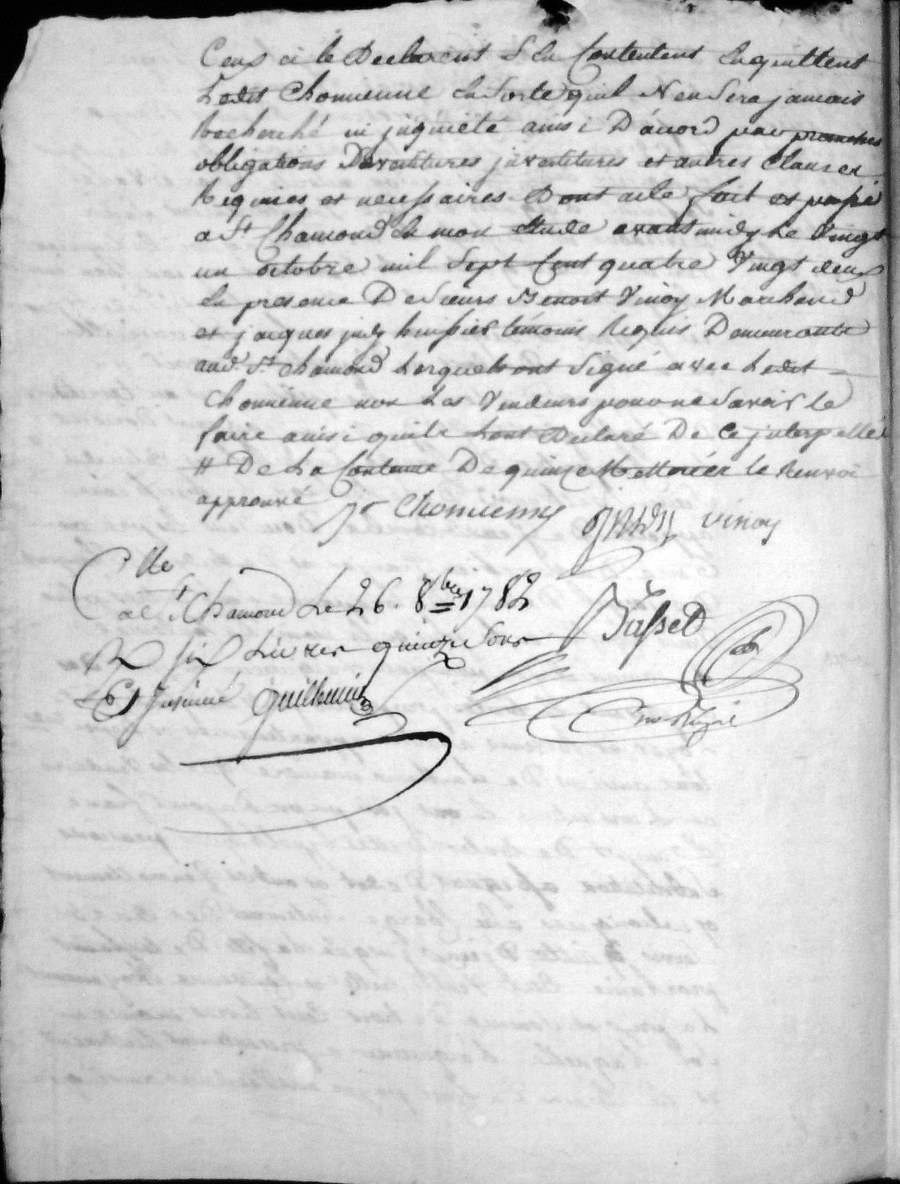 Ceux ci le Declarent S'en Contentent En quittent
Ledit Chomienne En Sorte quil N en Sera jamais
Recherché ni jnquiété ainsi D'acord par promesses
obligations Devestitures jnvestitures et autres Clauses
Requises et necessaires Dont acte fait et passé
a St Chamond En mon Etude avant midy Le Vingt
un octobre mil Sept Cent quatre Vingt deux
En presence De Sieurs Benoit Vinoy Marchand
et jacques temoins Requis Demeurants
aud. St Chamond Lesquels ont Signé avec Ledit
Chomienne non Les Vendeurs pour ne Savoir le
faire ainsi quils Lont Declaré De Ce jnterpellés
# De La Contenue De quinze Metterées le Renvoi
approuvé Chomienne vinoy
Clle
a St Chamond Le 26. 8bre 1782
R six Livres quinze Sous
Et Insinué Guilhemin